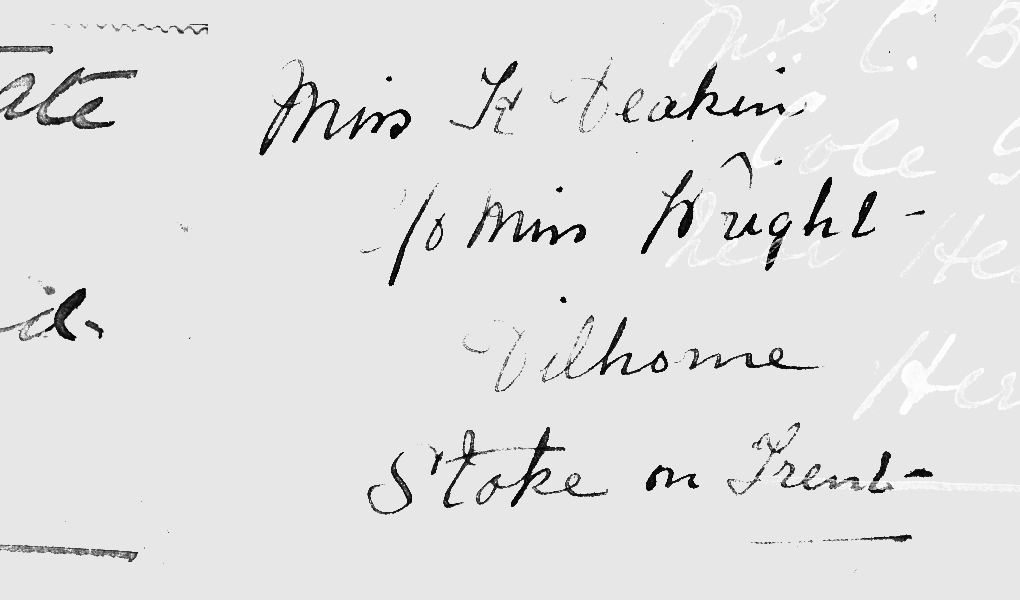 ate
Miss K Deakin
c/o Miss Wright
id.
Vilhome
Stoke on Trent
Mrs. C. B
Cole